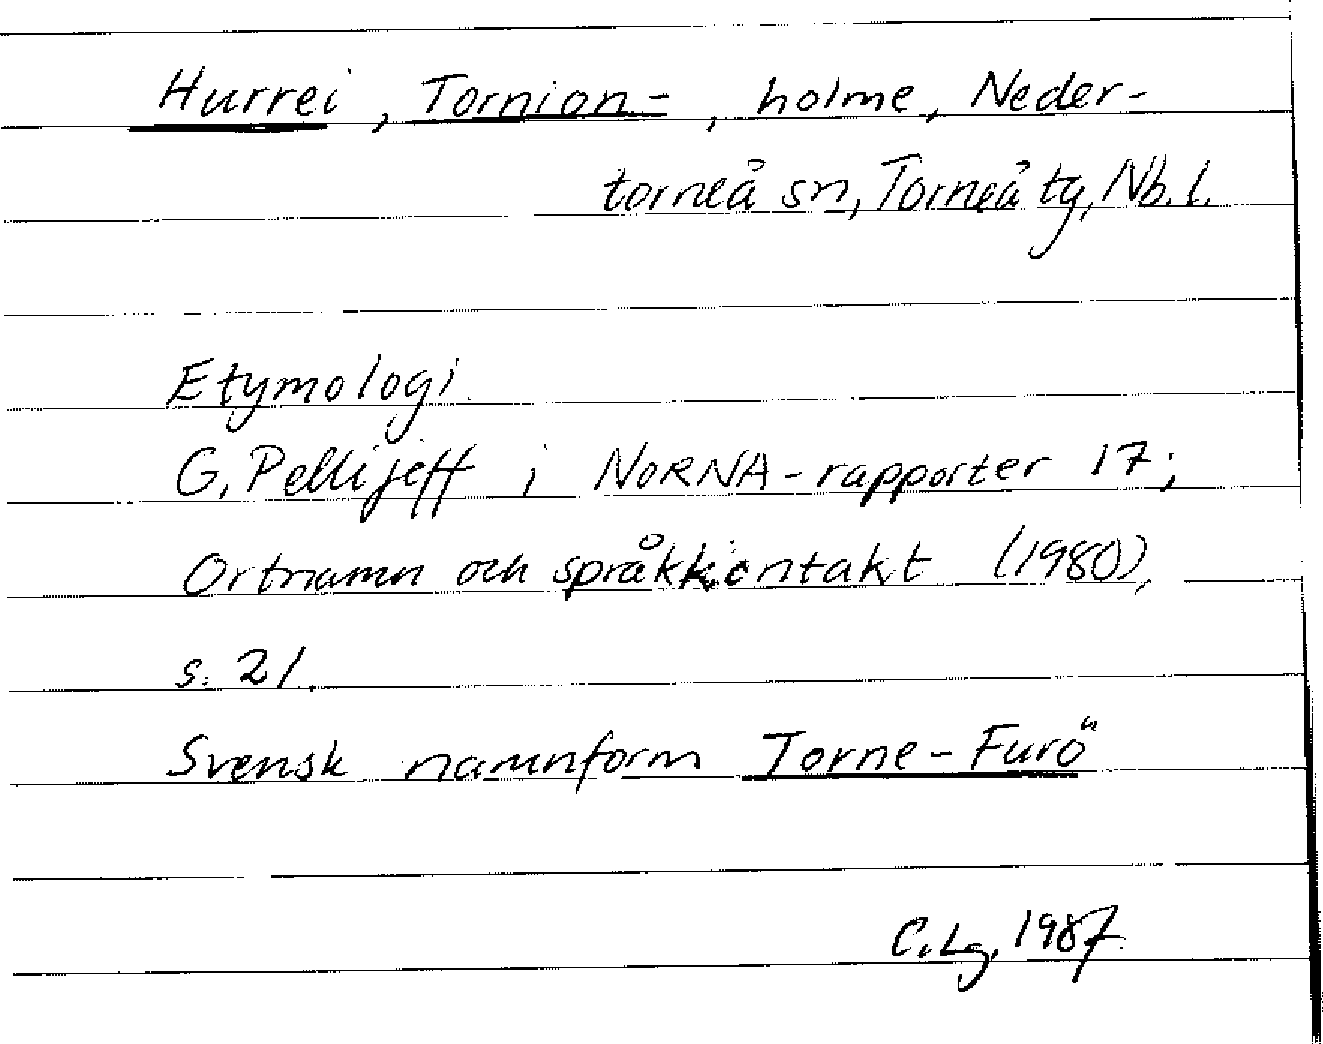 Hurrei, Tornion-, holme, Neder-
torneå sn, Torneå tg, Nb. l.
Etymologi.
G. Pellijeff i NORNA-rapporter 17;
Ortnamn och språkkontakt (1980),
s. 21.
Svensk namnform Torne-Furö
C. Lg, 1987.